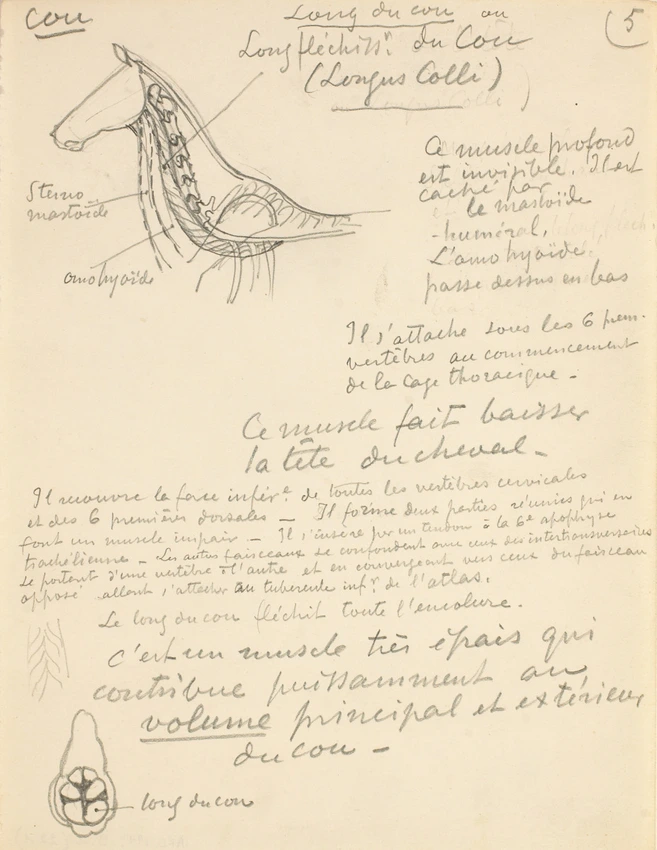 Cou
Long du cou ou
5
Long fléchiss.r du Cou
(Longus Colli)
Ce muscle profond
est invisible. Il est
caché par
le mastoïde
-huméral,
L'omohyoïde
passe dessus en bas
Sterno
mastoïde
omohyoïde
Il s'attache sous les 6 prem.
vertèbres au commencement
de la cage thoracique -
Ce muscle fait baisser
la tête du cheval -
Il recouvre la face infér.e de toutes les vertèbres cervicales
et des 6 premières dorsales - Il forme deux parties réunies qui en
font un muscle impair - Il s'insère par un tendon à la 6e apophyse
trachélienne - Les autres faisceaux se confondent avec ceux des intertransversaires
se portent d'une vertèbre à l'autre et en convergeant vers ceux du faisceau
opposé allant s'attacher au tubercule inf.r de l'atlas.
Le long du cou fléchit toute l'encolure.
C'est un muscle très épais qui
contribue puissamment au
volume principal et extérieur
du cou -
long du cou